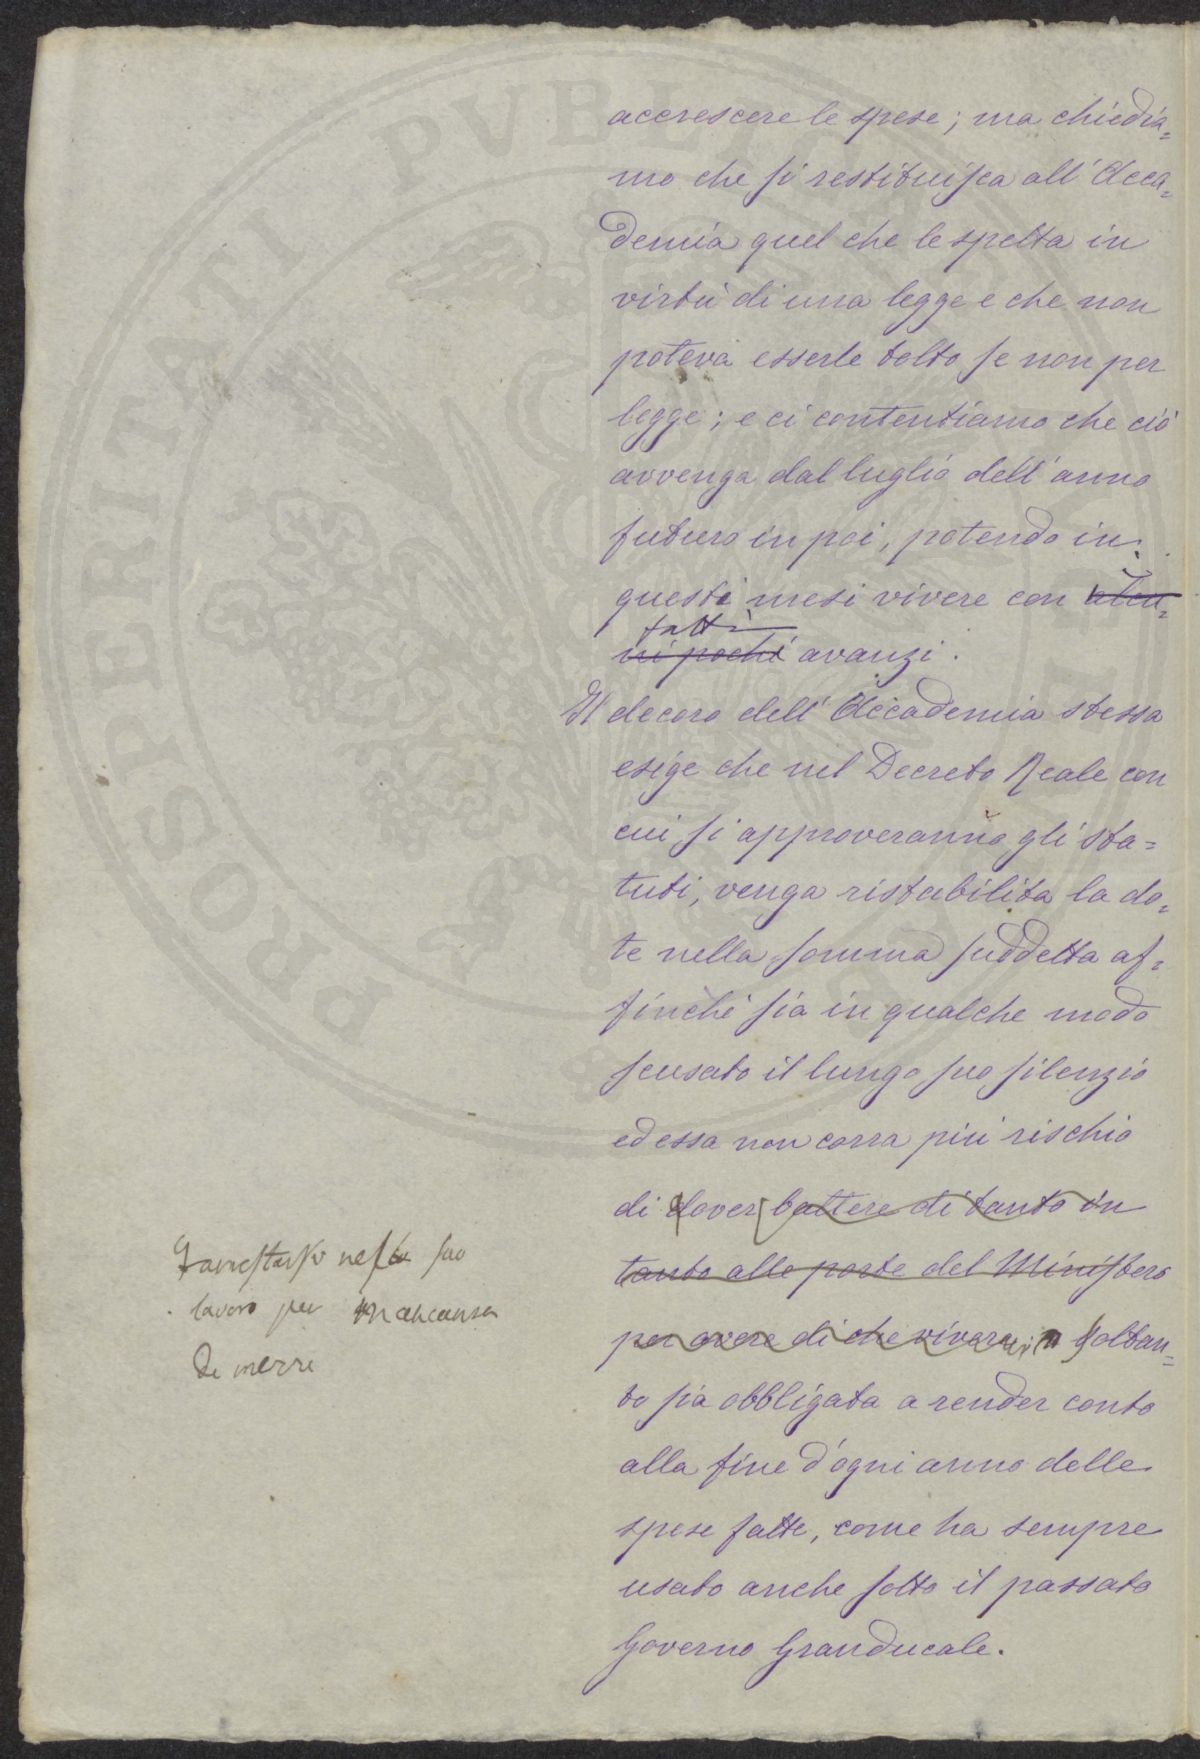 accrescere le spese; ma chiedia=
mo che si restituisca all'Acca=
demia quel che le spetta in
virtù di una legge e che non
poteva esserle tolto se non per
legge; e ci contentiamo che ciò
avvenga dal luglio dell'anno
futuro in poi, potendo in
questi mesi vivere con alcu=
fatti
ni pochi avanzi.
Il decoro dell'Accademia stessa
esige che nel Decreto Reale con
cui si approveranno gli sta=
tuti, venga ristabilita la do=
te nella somma suddetta af=
finchè sia in qualche modo
scusato il lungo suo silenzio
ed essa non corra più rischio
di dover battere di tanto in
tanto alle porte del Ministero
per avere di che vivere, e soltan=
to sia obbligata a render conto
alla fine d'ogni anno delle
spese fatte, come ha sempre
usato anche sotto il passato
Governo Granducale.
arrestarsi nel suo
lavoro per mancanza
di mezzi
PROSPERITATI PUBLICAE